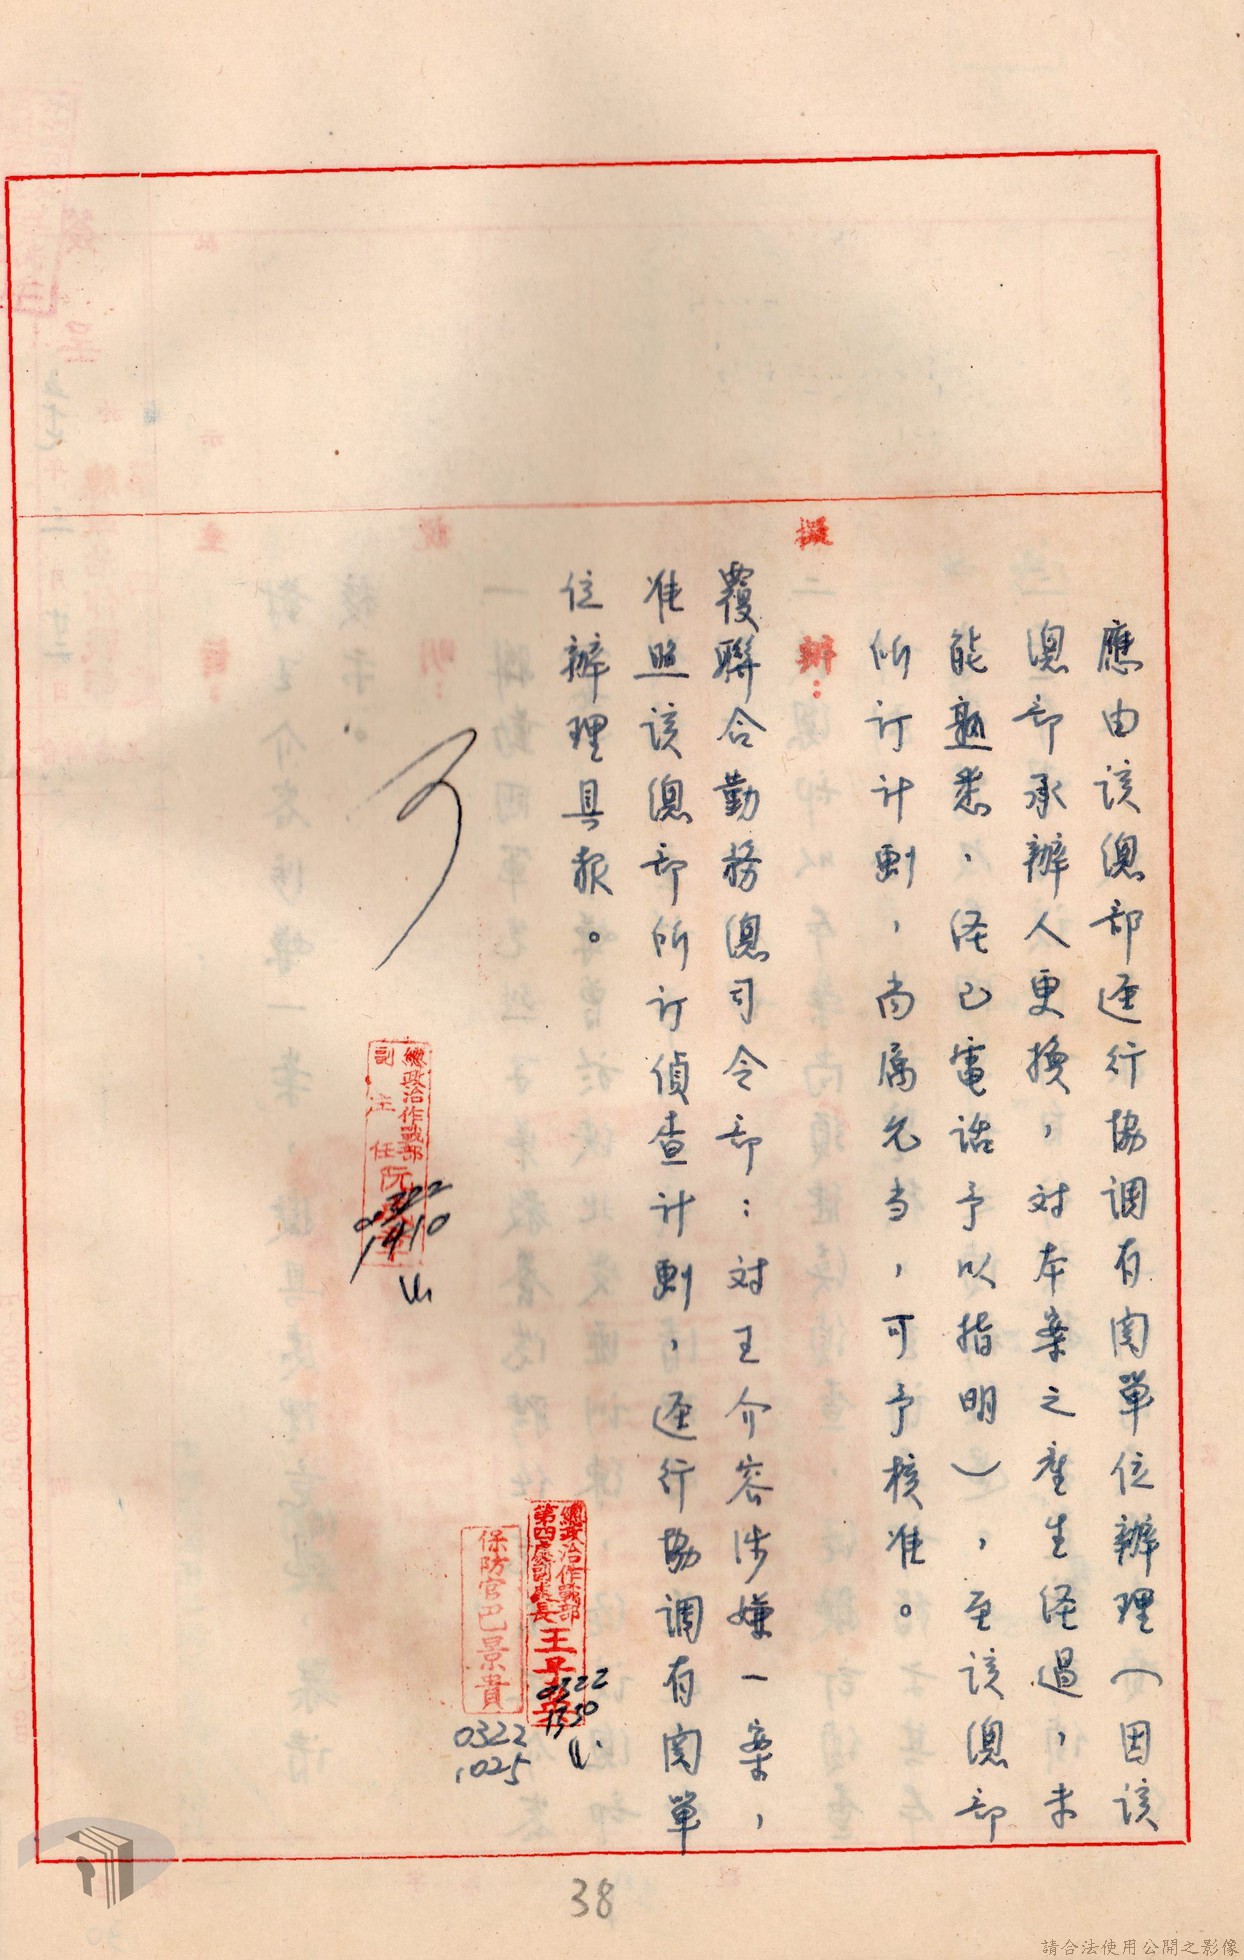 應由该總部逕行協調有関單位辦理（因该
總部承辦人更換，对本案之產生经過，未
能熟悉，经已電話予以指明），至该總部
所訂計劃，尚属允当，可予核准。
擬辦：
覆聯合勤務總司令部：对王介容涉嫌一案，
准照该總部所訂偵查計劃，逕行協調有関單
位辦理具報。
可
總政治作戰部
副主任阮
0322
1410
總政治作戰部
第四處副處長王
0322
1330
保防官巴景貴
0322
1025
38
請合法使用公開之影像